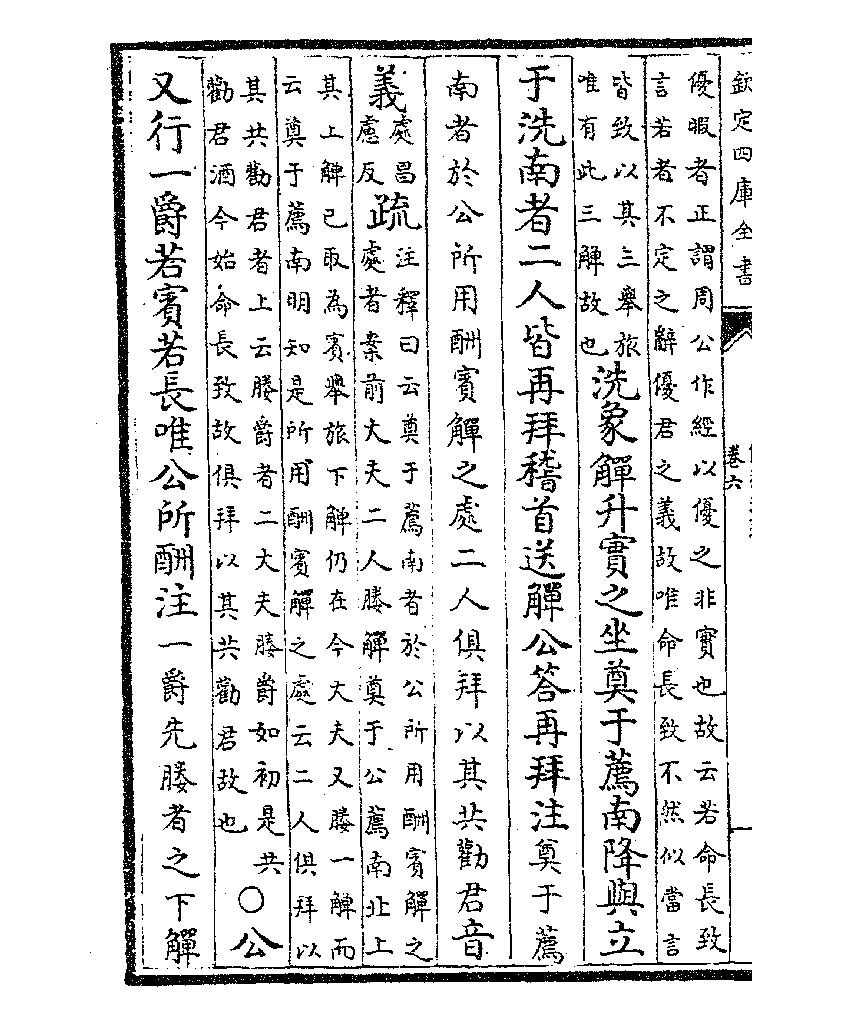 欽定四庫全書
卷六
優暇者正謂周公作經以優之非實也故云若命長致
言若者不定之辭優君之義故唯命長致不然似當言
皆致以其三舉旅
唯有此三觶故也
洗象觶升實之坐奠于薦南降與立
于洗南者二人皆再拜稽首送觶公答再拜注奠于薦
南者於公所用酬賓觶之處二人俱拜以其共勸君音
義
處昌
慮反
疏
注釋曰云奠于薦南者於公所用酬賓觶之
處者案前大夫二人媵觶奠于公薦南北上
其上觶已取為賓舉旅下觶仍在今大夫又媵一觶而
云奠于薦南明知是所用酬賓觶之處云二人俱拜以
其共勸君者上云媵爵者二大夫媵爵如初是共
勸君酒今始命長致故俱拜以其共勸君故也
○公
又行一爵若賓若長唯公所酬注一爵先媵者之下觶